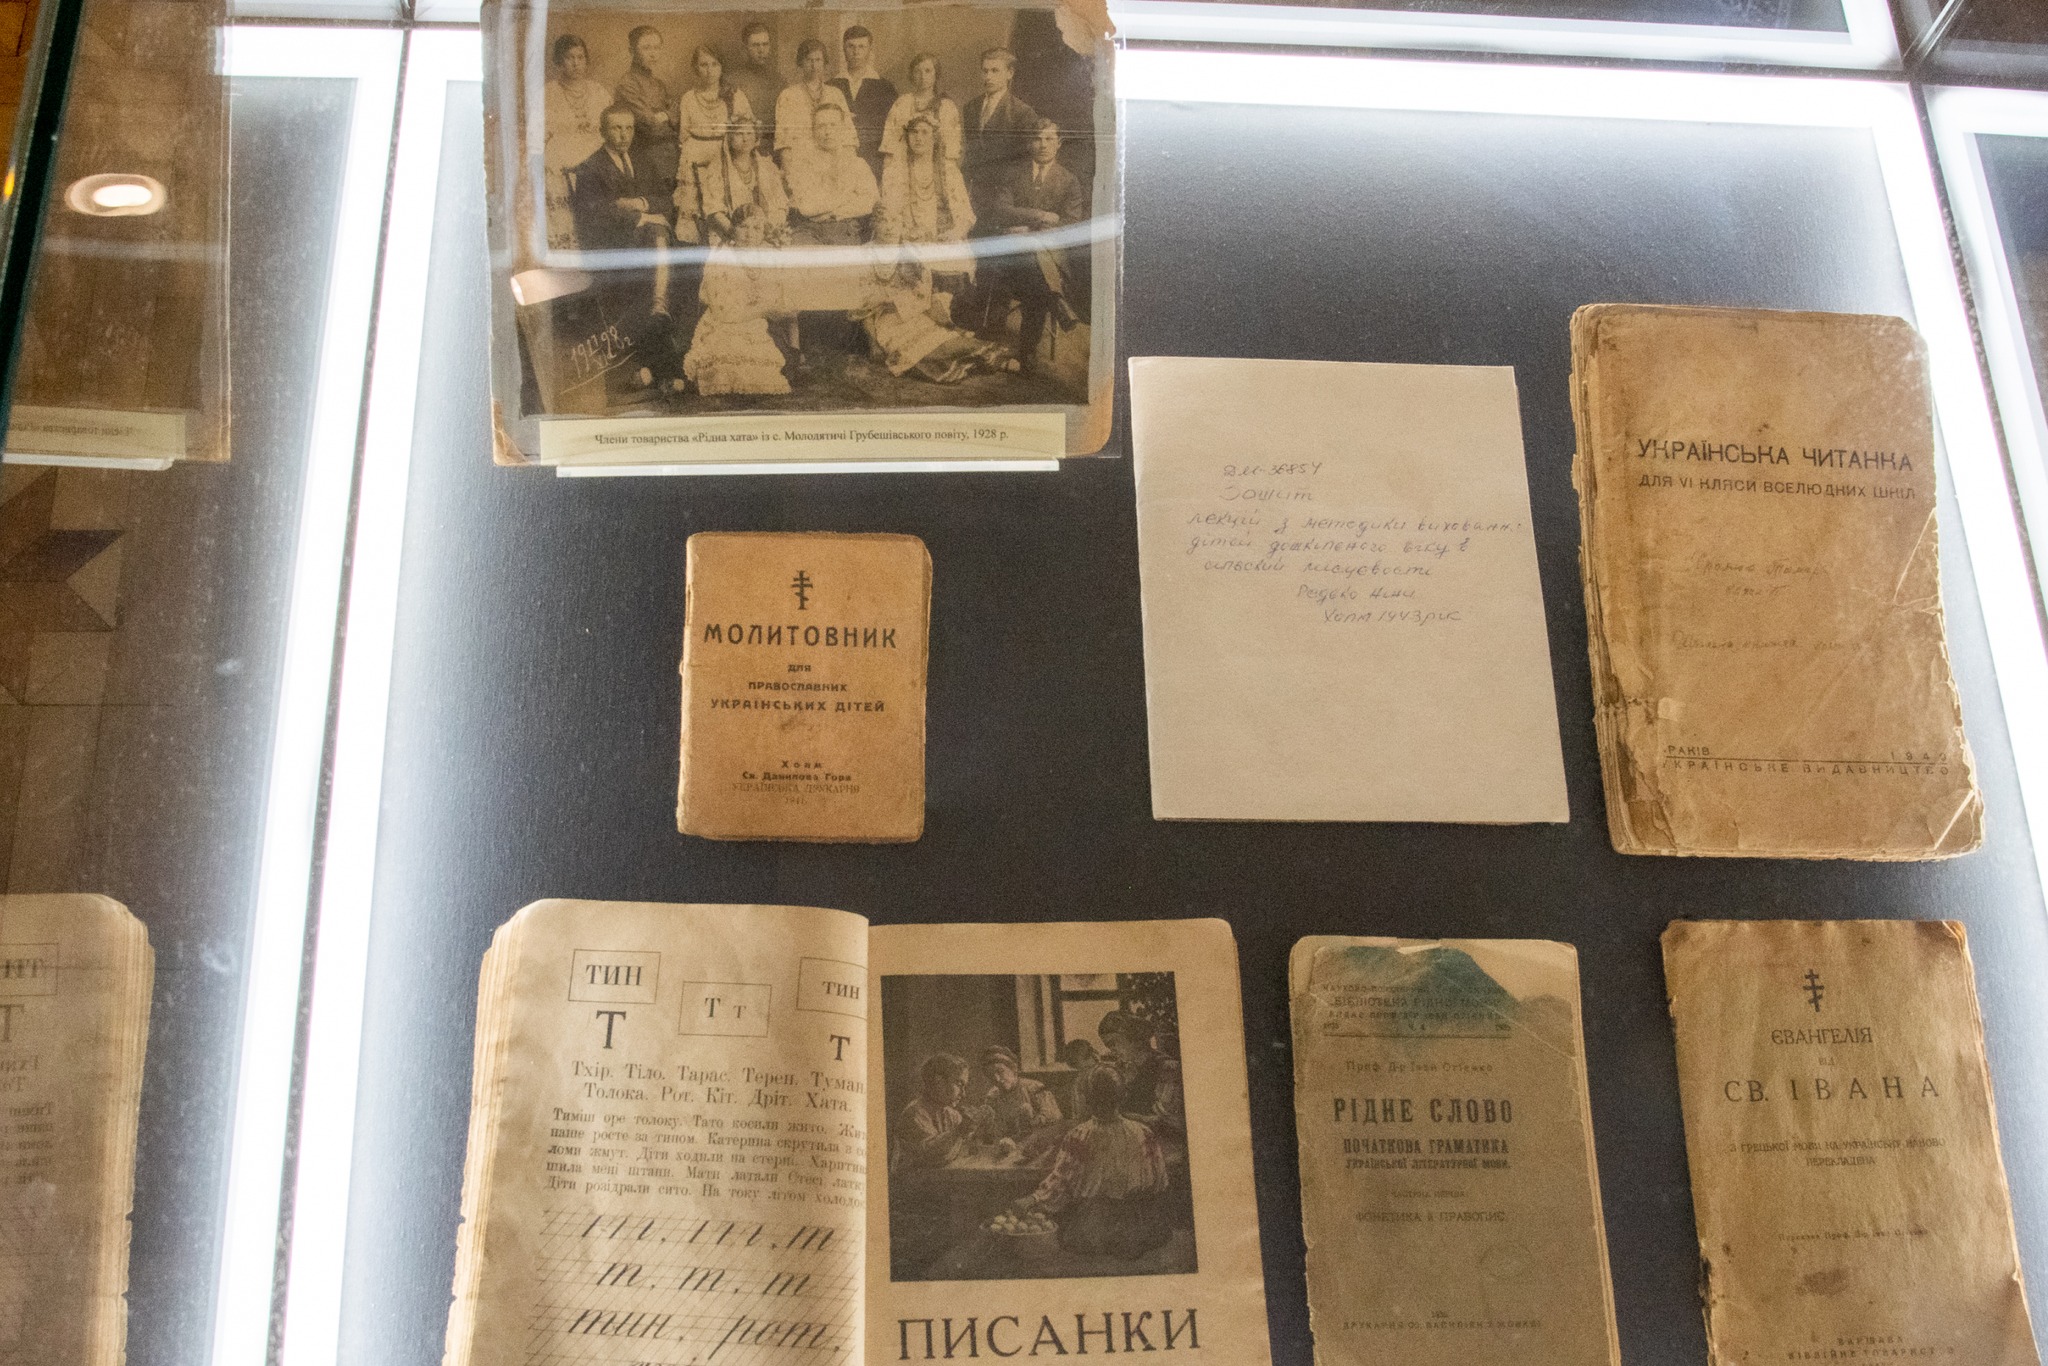 Члени товариства «Рідна хата» із с. Молодятичі Грубешівського повіту, 1928 р.
МОЛИТОВНИК
для
ПРАВОСЛАВНИХ
УКРАЇНСЬКИХ ДІТЕЙ
Холм
Св. Данилова Гора
УКРАЇНСЬКА ДРУКАРНЯ
ДМ-36854
Зошит
лекцій з методики виховання
дітей дошкільного віку в
сільский місцевости
Редько Ніни
Холм 1943 рік
УКРАЇНСЬКА ЧИТАНКА
ДЛЯ VI КЛЯСИ ВСЕЛЮДНИХ ШКІЛ
РАКІВ 1940
УКРАЇНСЬКЕ ВИДАВНИЦТВО
ТИН
Т т
ТИН
Т
Т
Тхір. Тіло. Тарас. Терен. Туман.
Толока. Рот. Кіт. Дріт. Хата.
Тиміш оре толоку. Тато косили жито. Жит
наше росте за тином. Катерина скрутила з со
ломи жмут. Діти ходили на стерні. Харитин
шила мені штани. Мати латали Стесі латк
Діти розідрали сито. На току літом холодо
т. т. т
т. т. т
тин. рот.
ПИСАНКИ
"БІБЛІОТЕКА РІДНОЇ МОВИ"
Ч. 4
Проф. Др Іван Огієнко
РІДНЕ СЛОВО
ПОЧАТКОВА ГРАМАТИКА
УКРАЇНСЬКОЇ ЛІТЕРАТУРНОЇ МОВИ.
ЧАСТИНА ПЕРША:
ФОНЕТИКА Й ПРАВОПИС.
ДРУКАРНЯ ОО. ВАСИЛІЯН У ЖОВКВІ
ЄВАНГЕЛІЯ
ВІД
СВ. ІВАНА
З ГРЕЦЬКОЇ МОВИ НА УКРАЇНСЬКУ НАНОВО
ПЕРЕКЛАДЕНА
Переклав Проф. Др. Іван Огієнко
ВАРШАВА
БІБЛІЙНЕ ТОВАРИСТВО